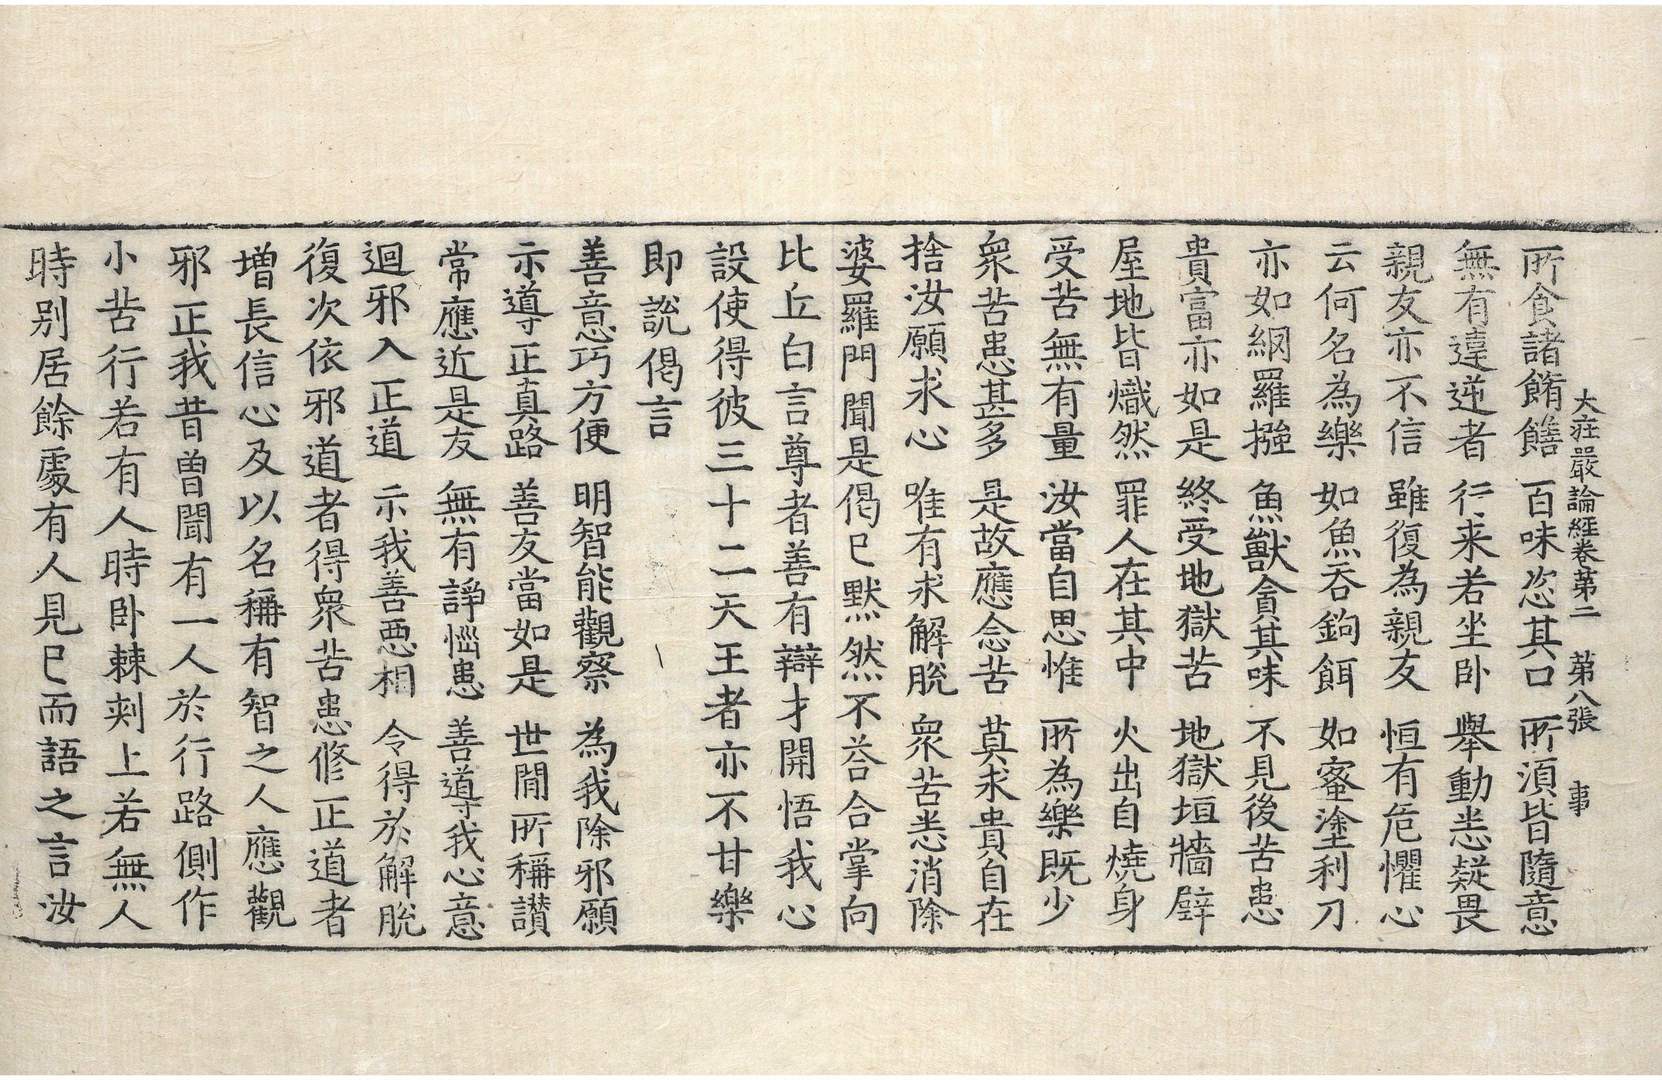 大莊嚴論經卷第二　第八張　事
所食諸餚饍　百味恣其口　所湏皆隨意
無有違逆者　行来若坐卧　舉動悉疑畏
親友亦不信　雖復為親友　恒有危懼心
云何名為樂　如魚吞鉤餌　如蜜塗利刀
亦如網羅摾　魚獸貪其味　不見後苦患
貴富亦如是　終受地獄苦　地獄垣牆壁
屋地皆熾然　罪人在其中　火出自燒身
受苦無有量　汝當自思惟　所為樂既少
衆苦患甚多　是故應念苦　莫求貴自在
捨汝願求心　唯有求解脫　衆苦悉消除
婆羅門聞是偈已默然不荅合掌向
比丘白言尊者善有辯才開悟我心
設使得彼三十二天王者亦不甘樂
即說偈言
善意巧方便　明智能觀察　為我除邪願
示導正真路　善友當如是　世閒所稱讃
常應近是友　無有諍惱患　善導我心意
迴邪入正道　示我善惡相　令得於解脫
復次依邪道者得衆苦患修正道者
增長信心及以名稱有智之人應觀
邪正我昔曾聞有一人於行路側作
小苦行若有人時卧棘刺上若無人
時別居餘處有人見已而語之言汝